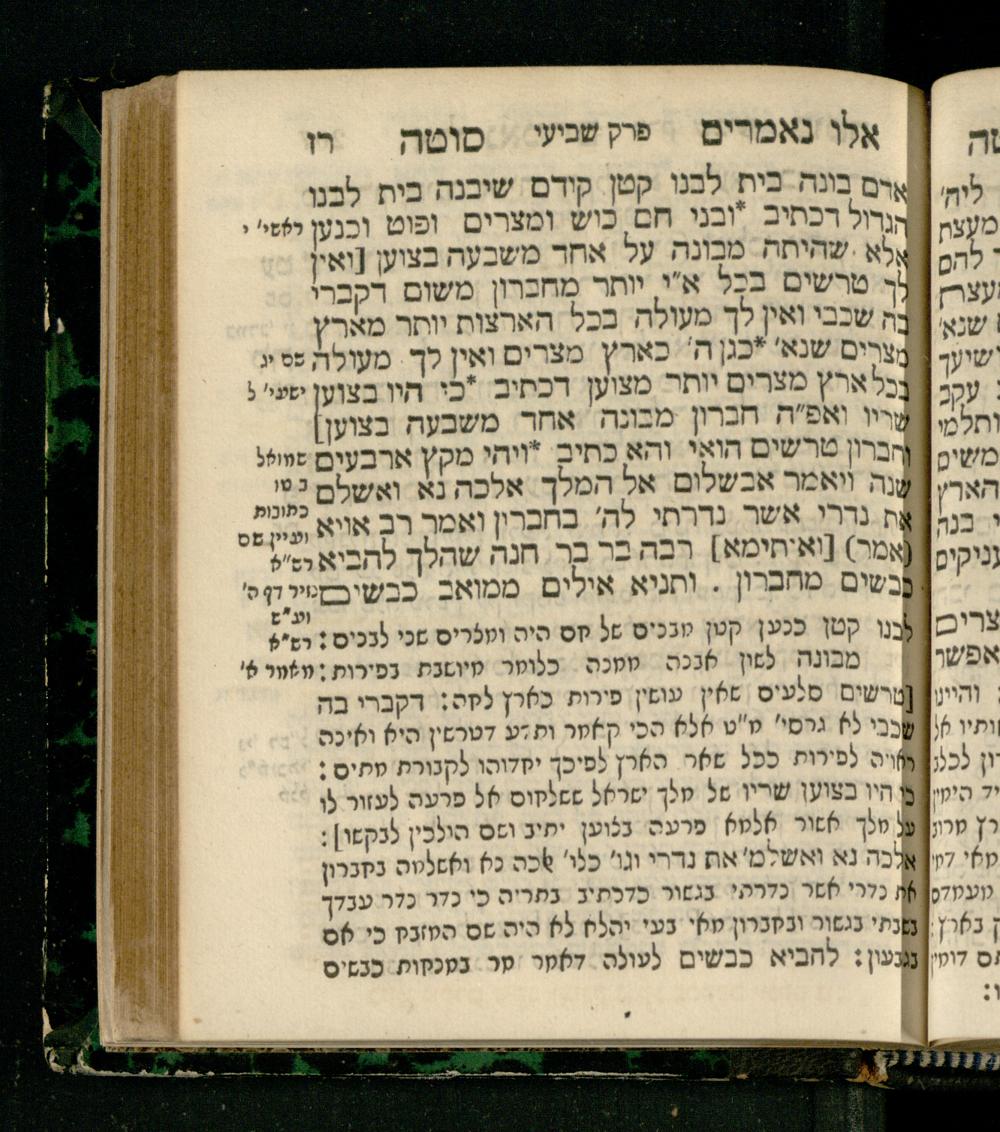 אלו נאמרים פרק שביעי סוטה רז
אדם בונה בית לבנו קטן קודם שיבנה בית לבנו
הגדול דכתיב *ובני חם כוש ומצרים ופוט וכנען
אלא שהיתה מבונה על אחד משבעה בצוען [ואין
לך טרשים בכל א״י יותר מחברון משום דקברי
בה שכבי ואין לך מעולה בכל הארצות יותר מארץ
מצרים שנא׳ *כגן ה׳ כארץ מצרים ואין לך מעולה
בכל ארץ מצרים יותר מצוען דכתיב *כי היו בצוען
שריו ואפ״ה חברון מבונה אחד משבעה בצוען]
וחברון טרשים הואי והא כתיב *ויהי מקץ ארבעים
שנה ויאמר אבשלום אל המלך אלכה נא ואשלם
את נדרי אשר נדרתי לה׳ בחברון ואמר רב אויא
(אמר) [ואיתימא] רבה בר בר חנה שהלך להביא
כבשים מחברון . ותניא אילים ממואב כבשים
לבנו קטן כנען קטן מבנים של חם היה ומצרים שני לבנים :
מבונה לשון אבנה ממנה כלומר מיושבת בפירות :
[טרשים סלעים שאין עושין פירות כארץ לחה : דקברי בה
שכבי לא גרסי׳ מ״ט אלא הכי קאמר ותדע דטרשין היא ואינה
ראויה לפירות ככל שאר הארץ לפיכך יחדוהו לקבורת מתים :
כי היו בצוען שריו של מלך ישראל ששלחום אל פרעה לעזור לו
על מלך אשור אלמא פרעה בצוען יתיב ושם הולכין לבקשו] :
אלכה נא ואשלמ׳ את נדרי וגו׳ כלו׳ אלכה נא ואשלמה בחברון
את נדרי אשר נדרתי בגשור כדכתיב בתריה כי נדר נדר עבדך
בשבתי בגשור ובחברון מאי בעי יהלא לא היה שם המזבח כי אם
בגבעון : להביא כבשים לעולה דאמר מר במנחות כבשים
ראשי׳ י
שם יג
ישעי׳ ל
שמואל
ב טו
כתובות
ועיין שם
רש״א
נזיר דף ה׳
וע״ש
רש״א
מאמר א׳
טה
ליה׳
מעצת
להם
שנא׳
עקב
ותלמי
משים
הארץ
בנה
ענקים
צרים
אפשר
והיינו